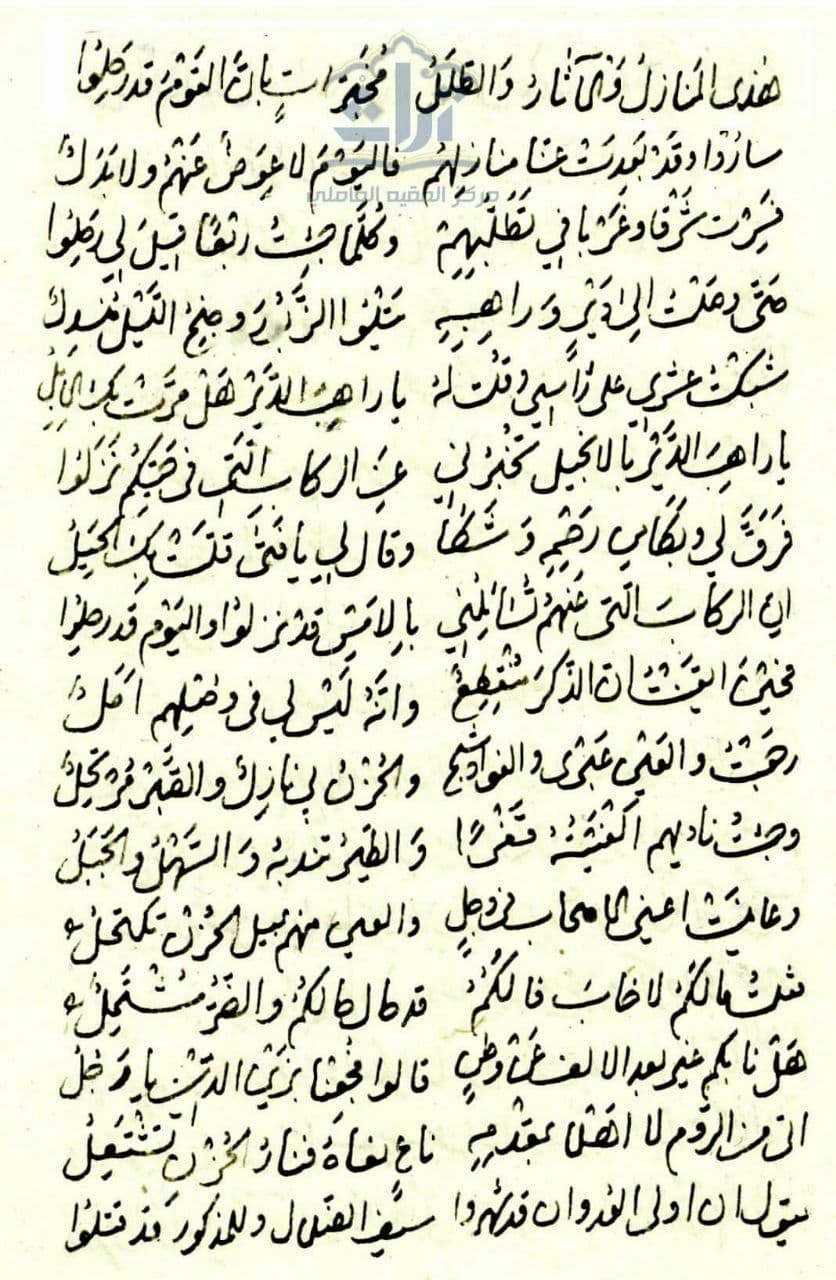 هٰذى المَنازلُ وَالآثارُ وَالطَّلَلُ مُخبِّراتٍ بانَّ القَوْمَ قد رَحَلُوا
سارُوا وقَدْ بَعِدَتْ عنّا منازلهُم فاليَوْمَ لا عِوَضٌ عَنْهُمْ ولا بَدَلُ
فَسِرْت شَرْقا وغَرْبا في تَطَلُّبِهِمْ وكُلَّما جِئْتُ ربْعًا قيلَ لي رَحَلُوا
حَتّى وصَلْتُ الى دَيْرٍ وَراهِبِهِ يَتْلُوا الزَّبُورَ وجنحُ اللَّيْلِ مُنْسدِلُ
شبكْتُ عشري على رَاسي وقلْت لهُ يا راهبَ الدَّيْر هَلْ مَرَّتْ بك الإِبلُ
يا راهبَ الدَّيْر بالانجيل تخْبرُني عن الركاب الّتي في حَيّكم نَزَلُوا
فَرَقَّ لي وبَكا لي رَحْمةً وَشَكا وقال لي يا فَتَى قلّت بك الحِيَلُ
انّ الركابَ الّتى عَنْهُمْ تُسائلُني بالامسِ قدْ نزلوا واليَوْم قد رحلوا
فحينَ ايقنْتُ انّ الذّكرَ مُنْقطِعٌ وانّهُ لَيْسَ لي في وصْلِهم املُ
رجعْتُ والعَيْن عَبْرى والفواد شجٍ والحُزْنُ بي نازلٌ والصَّبْرُ مُرْتحِلُ
وجئْتُ ناديهم الفَيْتُهُ قَفْرًا وَالطَّيْرُ تندبهُ وَالسَّهْلُ والجَبَلُ
وعاينَتْ اعيني الاصحاب في وجلٍ والعين منهم بميل الحُزْن تكتحلُ
فقلتُ مالكُمْ لا خابَ فالكُمُ قد حال حالكُمُ والضّرُّ مُشْتَمِلُ
هَلْ نابكم غير بعد الالف عَنْ وطنٍ قالوا فُجِعْنا بزَيْن الدّين يا رَجُلُ
اتى من الروم لا اهْلا بمَقْدَمِهِ ناعٍ نعاهُ فنارُ الحُزْنِ تَشْتَعِلُ
يقول ان اولى العدوان قد شهروا سيْف الضّلال وللمذكور قد قتلوا